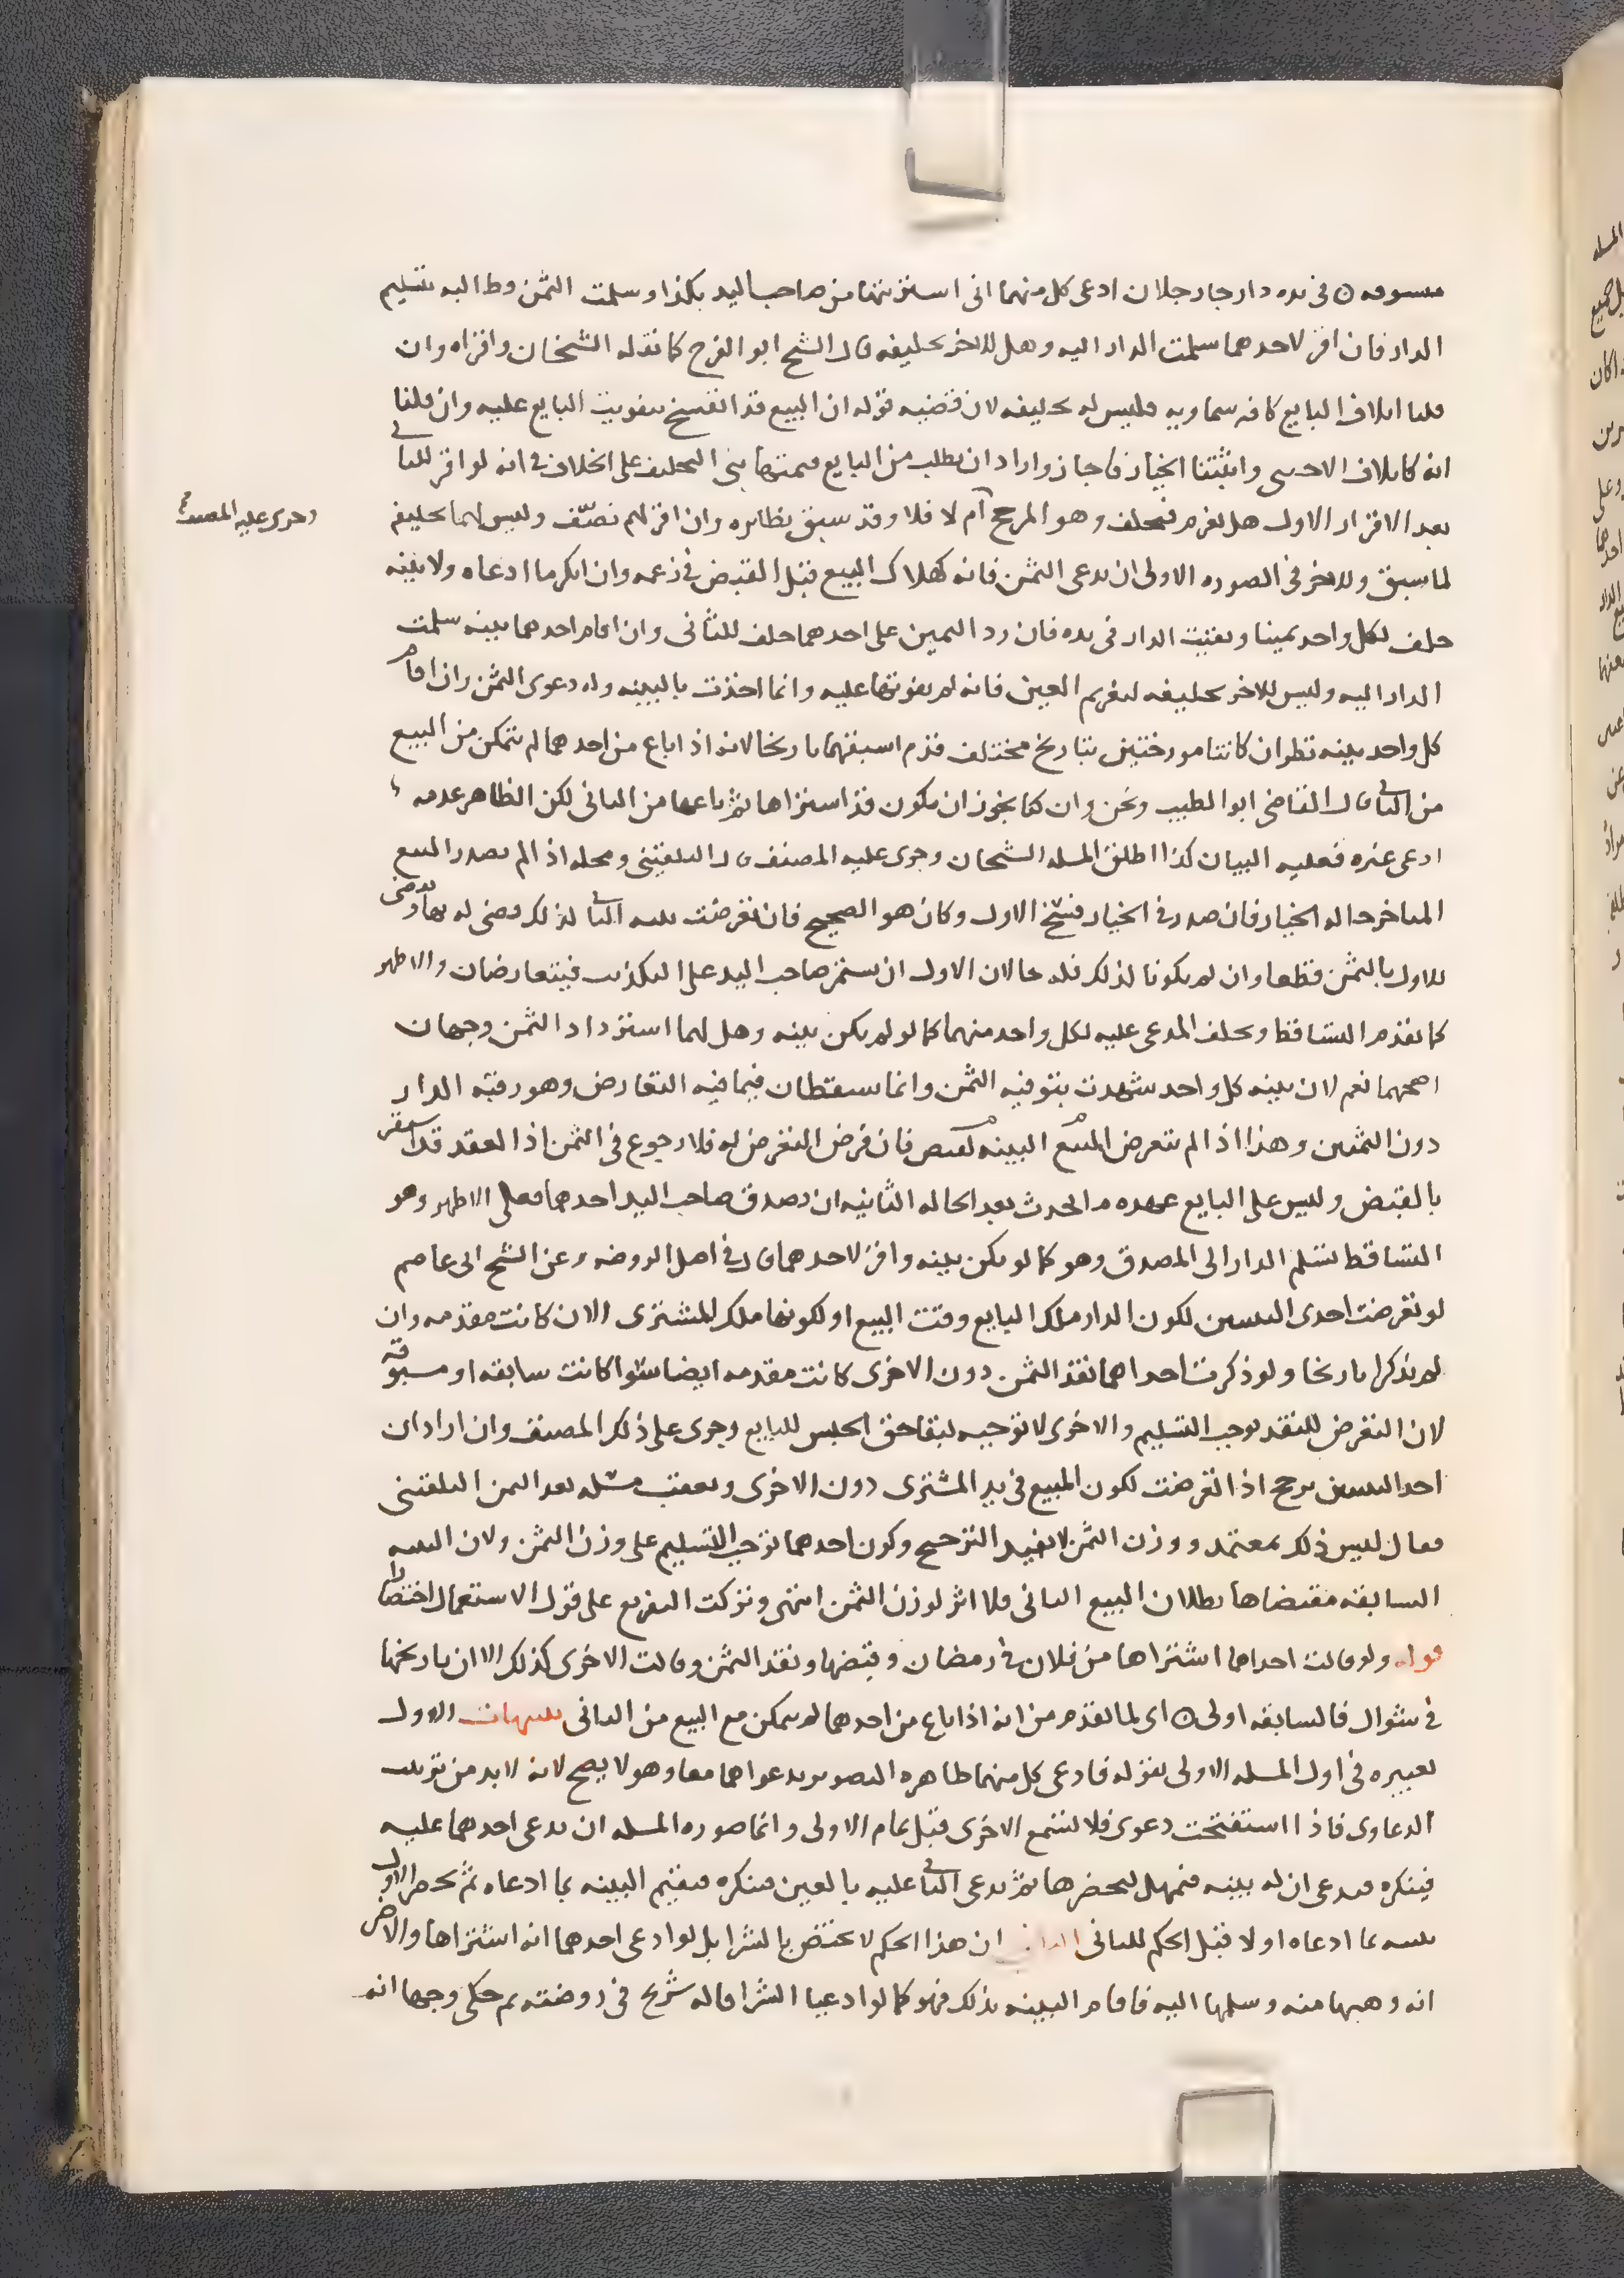 مسبوقه ⊙ في يده دار جا رجلان ادعى كل منهما اني اشتريتها من صاحب اليد بكذا وسلمت الثمن وطالبه بتسليم
الدار فان اقر لاحدهما سلمت الدار اليه وهل للاخر تحليفه قال الشيخ ابو الفرج كما نقله الشيخان واقراه وان
قلنا اتلاف البايع كافه سماويه فليس له تحليفه لان قضيه قوله ان البيع قد انفسخ بتفويت البايع عليه وان قلنا
انه كاتلاف الاجنبي واثبتنا الخيار فاجاز واراد ان يطلب من البايع قيمتها بنى التحليف على الخلاف في انه لو اقر للثاني
بعد الاقرار الاول هل يغرم فيحلف وهو المرجح ام لا فلا وقد سبق نظايره وان اقر لهم نصف وليس لهما تحليفه
وجرى عليه المصنف
لما سبق وللاخر في الصوره الاولى ان يدعى الثمن فانه كهلاك المبيع قبل القبض في زعمه وان انكر ما ادعاه ولا بينه
حلف لكل واحد يمينا وبقيت الدار في يده فان رد اليمين على احدهما حلف للثاني وان اقام احدهما بينه سلمت
الدار اليه وليس للاخر تحليفه لتغريم العين فانه لم يفوتها عليه وانما اخذت بالبينه وله دعوى الثمن وان اقام
كل واحد بينه نظر ان كانتا مورختين بتاريخ مختلف قدم اسبقهما تاريخا لانه اذا باع من احدهما لم يتمكن من البيع
من الثاني قال القاضي ابو الطيب ونحن وان كنا نجوز ان يكون قد اشتراها ثم باعها من الثاني لكن الظاهر عدمه
ادعى غيره فعليه البيان كذا اطلق المسله الشيخان وجرى عليه المصنف قال البلقيني ومحله اذا لم يصدر البيع
المتاخر حاله الخيار فان صدر في الخيار فسخ الاول وكان هو الصحيح فان تعرضت بينه الثاني لذلك قضي له بها وقضي
للاول بالثمن قطعا وان لم يكونا لذلك فله حالان الاول ان يستمر صاحب اليد على التكذيب فيتعارضان والاظهر
كما تقدم التساقط ويحلف المدعى عليه لكل واحد منهما كما لو لم يكن بينه وهل لهما استرداد الثمن وجهان
اصحهما نعم لان بينه كل واحد شهدت بتوفيه الثمن وانما سقطتا فيما فيه التعارض وهو رقبه الدار
دون الثمنين وهذا اذا لم تتعرض البينه لقبض المبيع فان فرض التعرض له فلا رجوع في الثمن اذ العقد قد استقر
بالقبض وليس على البايع عهده ما يحدث بعد الحاله الثانيه ان يصدق صاحب اليد احدهما فعلى الاظهر وهو
التساقط تسلم الدار الى المصدق وهو كما لو لم يكن بينه واقر لاحدهما قال في اصل الروضه وعن الشيخ ابي عاصم
لو تعرضت احدى البينتين لكون الدار ملك البايع وقت البيع او لكونها ملك المشتري الان كانت مقدمه وان
لم يذكرا تاريخا ولو ذكرت احداهما نقد الثمن دون الاخرى كانت مقدمه ايضا سوا كانت سابقه او مسبوقه
لان التعرض للنقد يوجب التسليم والاخرى لا توجبه لبقا حق الحبس للبايع وجرى على ذلك المصنف وان اراد ان
احد البينتين ترجح اذا تعرضت لكون المبيع في يد المشتري دون الاخرى وتعقب مسله نقد الثمن البلقيني
فقال ليس ذلك بمعتمد ووزن الثمن لا يفيد الترجيح وكون احدهما توجب التسليم على وزن الثمن ولان البينه
السابقه مقتضاها بطلان البيع الثاني فلا اثر لوزن الثمن انتهى وتركت التفريع على قول الاستعمال اختصارا
قوله ولو قالت احداهما اشتراها من فلان في رمضان وقبضها ونقد الثمن وقالت الاخرى كذلك الا ان تاريخها
في شوال فالسابقه اولى ⊙ اي لما تقدم من انه اذا باع من احدهما لم يتمكن مع البيع من الثاني تنبيهات الاول
تعبيره في اول المسله الاولى بقوله فادعى كل منهما ظاهره التصوير بدعواهما معا وهو لا يصح لانه لا بد من ترتيب
الدعاوى فاذا استفتحت دعوى فلا تسمع الاخرى قبل تمام الاولى وانما صوره المسله ان يدعى احدهما عليه
فينكره فيدعى ان له بينه فيمهل ليحضرها ثم يدعى الثاني عليه بالعين فينكره فيقيم البينه بما ادعاه ثم يحضر الاول
بينه بما ادعاه اولا قبل الحكم للثاني الثاني ان هذا الحكم لا يختص بالشرا بل لو ادعى احدهما انه اشتراها والاخر
انه وهبها منه وسلمها اليه فاقام البينه بذلك فهو كما لو ادعيا الشرا قاله شريح في روضته ثم حكى وجها انه